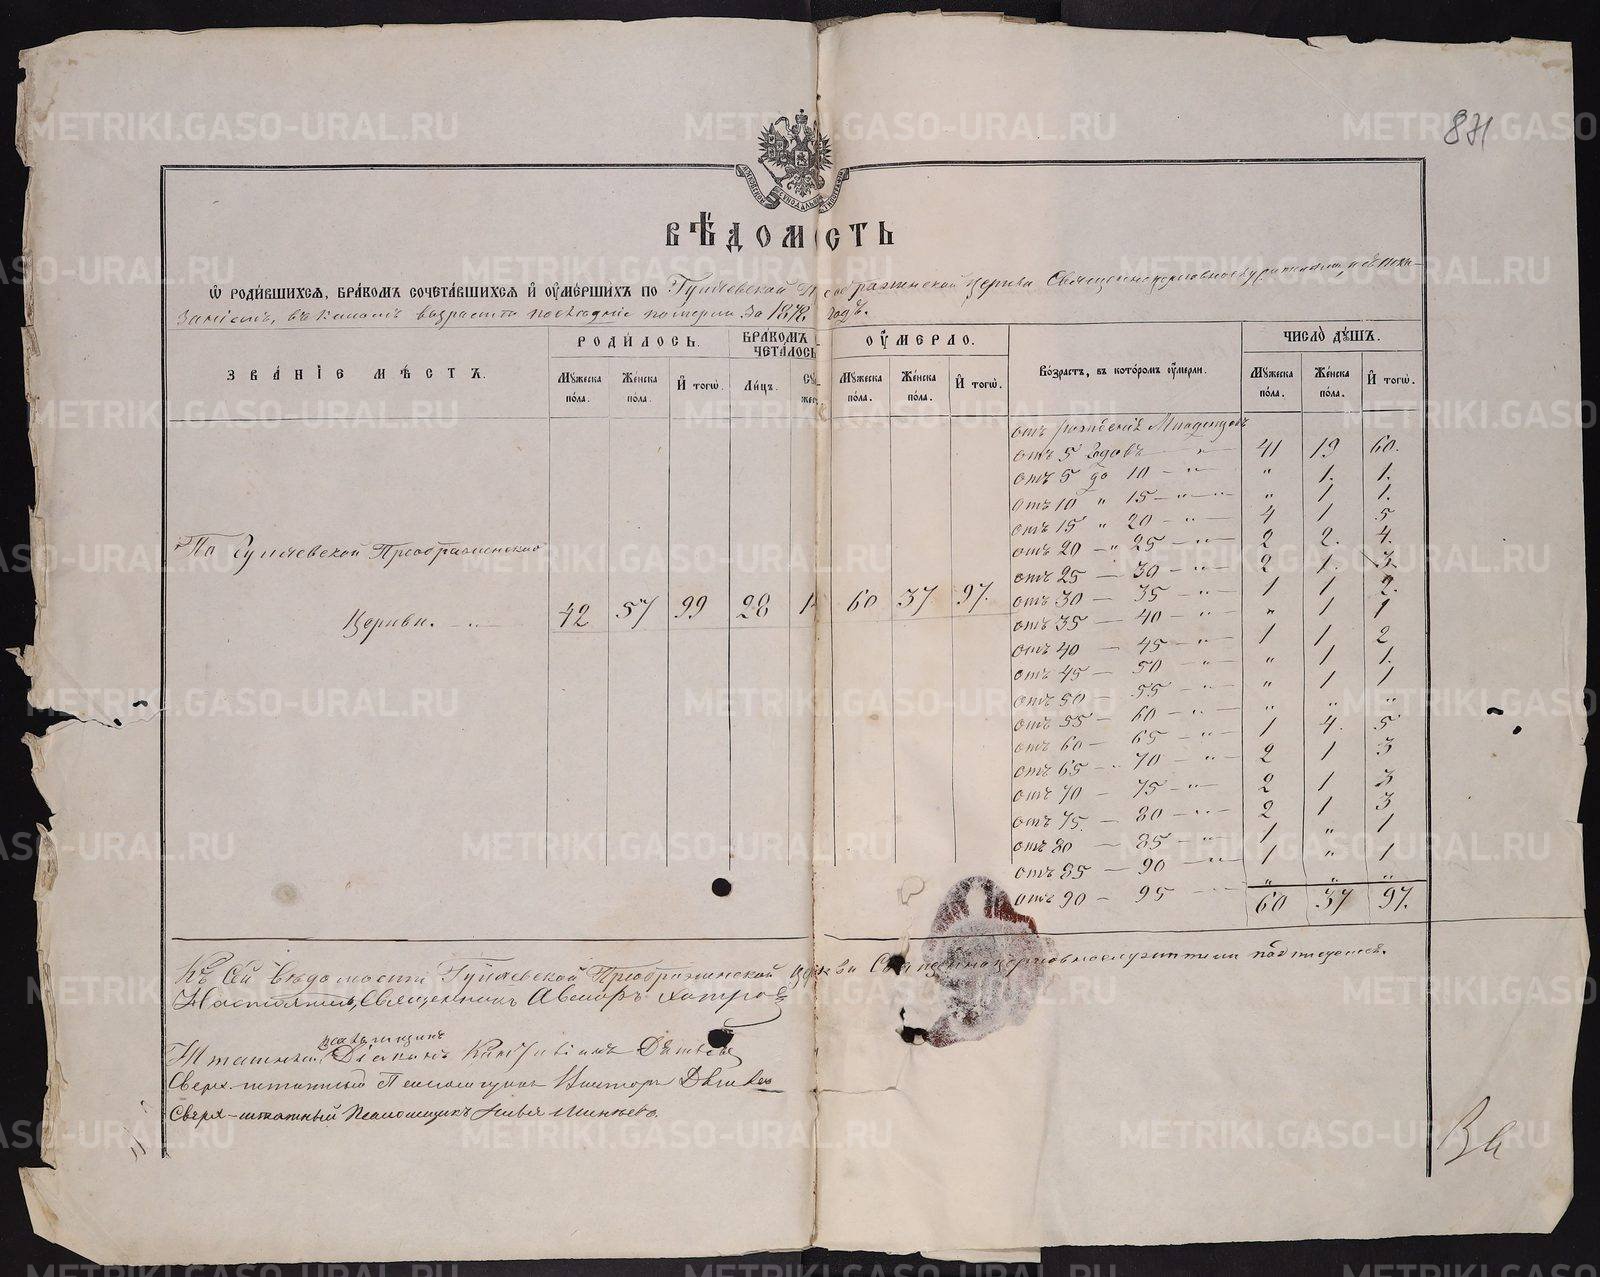 871
МОСКОВСКОЙ СѴНОДАЛЬНОЙ ТИПОГРАФІИ
ВѢДОМОСТЬ
Ѡ РОДИВШИХСЯ, БРАКОМЪ СОЧЕТАВШИХСЯ И ОУМЕРШИХЪ ПО церкви священноцерковнослужителями, съ пока-
заніемъ, въ какомъ возрастѣ последніе померли за 1872 годъ.
ЗВАНІЕ МѢСТЪ.
РОДИЛОСЬ.
БРАКОМЪ ЧЕТАЛОСЬ
ОУМЕРЛО.
Возрастъ, въ которомъ оумерли.
ЧИСЛО ДУШЪ.
Мужеска пола. Женска пола. И тогѡ. Лицъ. Су- жес Мужеска пола. Женска пола. И тогѡ. Мужеска пола. Женска пола. И тогѡ.
отъ рожденія Младенцовъ
отъ 5 годовъ — " — 41 19 60.
отъ 5 до 10 — " — " 1. 1.
отъ 10 " 15 — " — " 1 1.
отъ 15 " 20 — " — 4 1 5
отъ 20 — " 25 — " — 2 2. 4.
отъ 25 — 30 — " — 2 1. 3
отъ 30 — 35 — " — 1 1 2.
отъ 35 — 40 — " — " 1 1
отъ 40 — 45 — " — 1 1 2
отъ 45 — 50 — " — " 1 1.
отъ 50 55 — " — " 1 1
отъ 55 — 60 — " — " " "
отъ 60 — 65 — " — 1 4. 5
отъ 65 — 70 — " — 2 1 3
отъ 70 — 75 — " — 2 1 3
отъ 75. — 80 — " — 2 1 3
отъ 80 — 85 — " — 1 " 1
отъ 85 — 90 — " — 1 " 1
отъ 90 — 95 — " " "
60 37 97.
По Преображенской
Церкви. — " — 42 57 99 28 60 37 97.
Къ сей вѣдомости Преображенской церкви Священноцерковнослужители подписомсѣ.
Священникъ
псаломщикъ
Штатный Діаконъ
Сверх-штатный Псаломщикъ Викторъ
Сверх-штатный Псаломщикъ Илья
METRIKI.GASO-URAL.RU